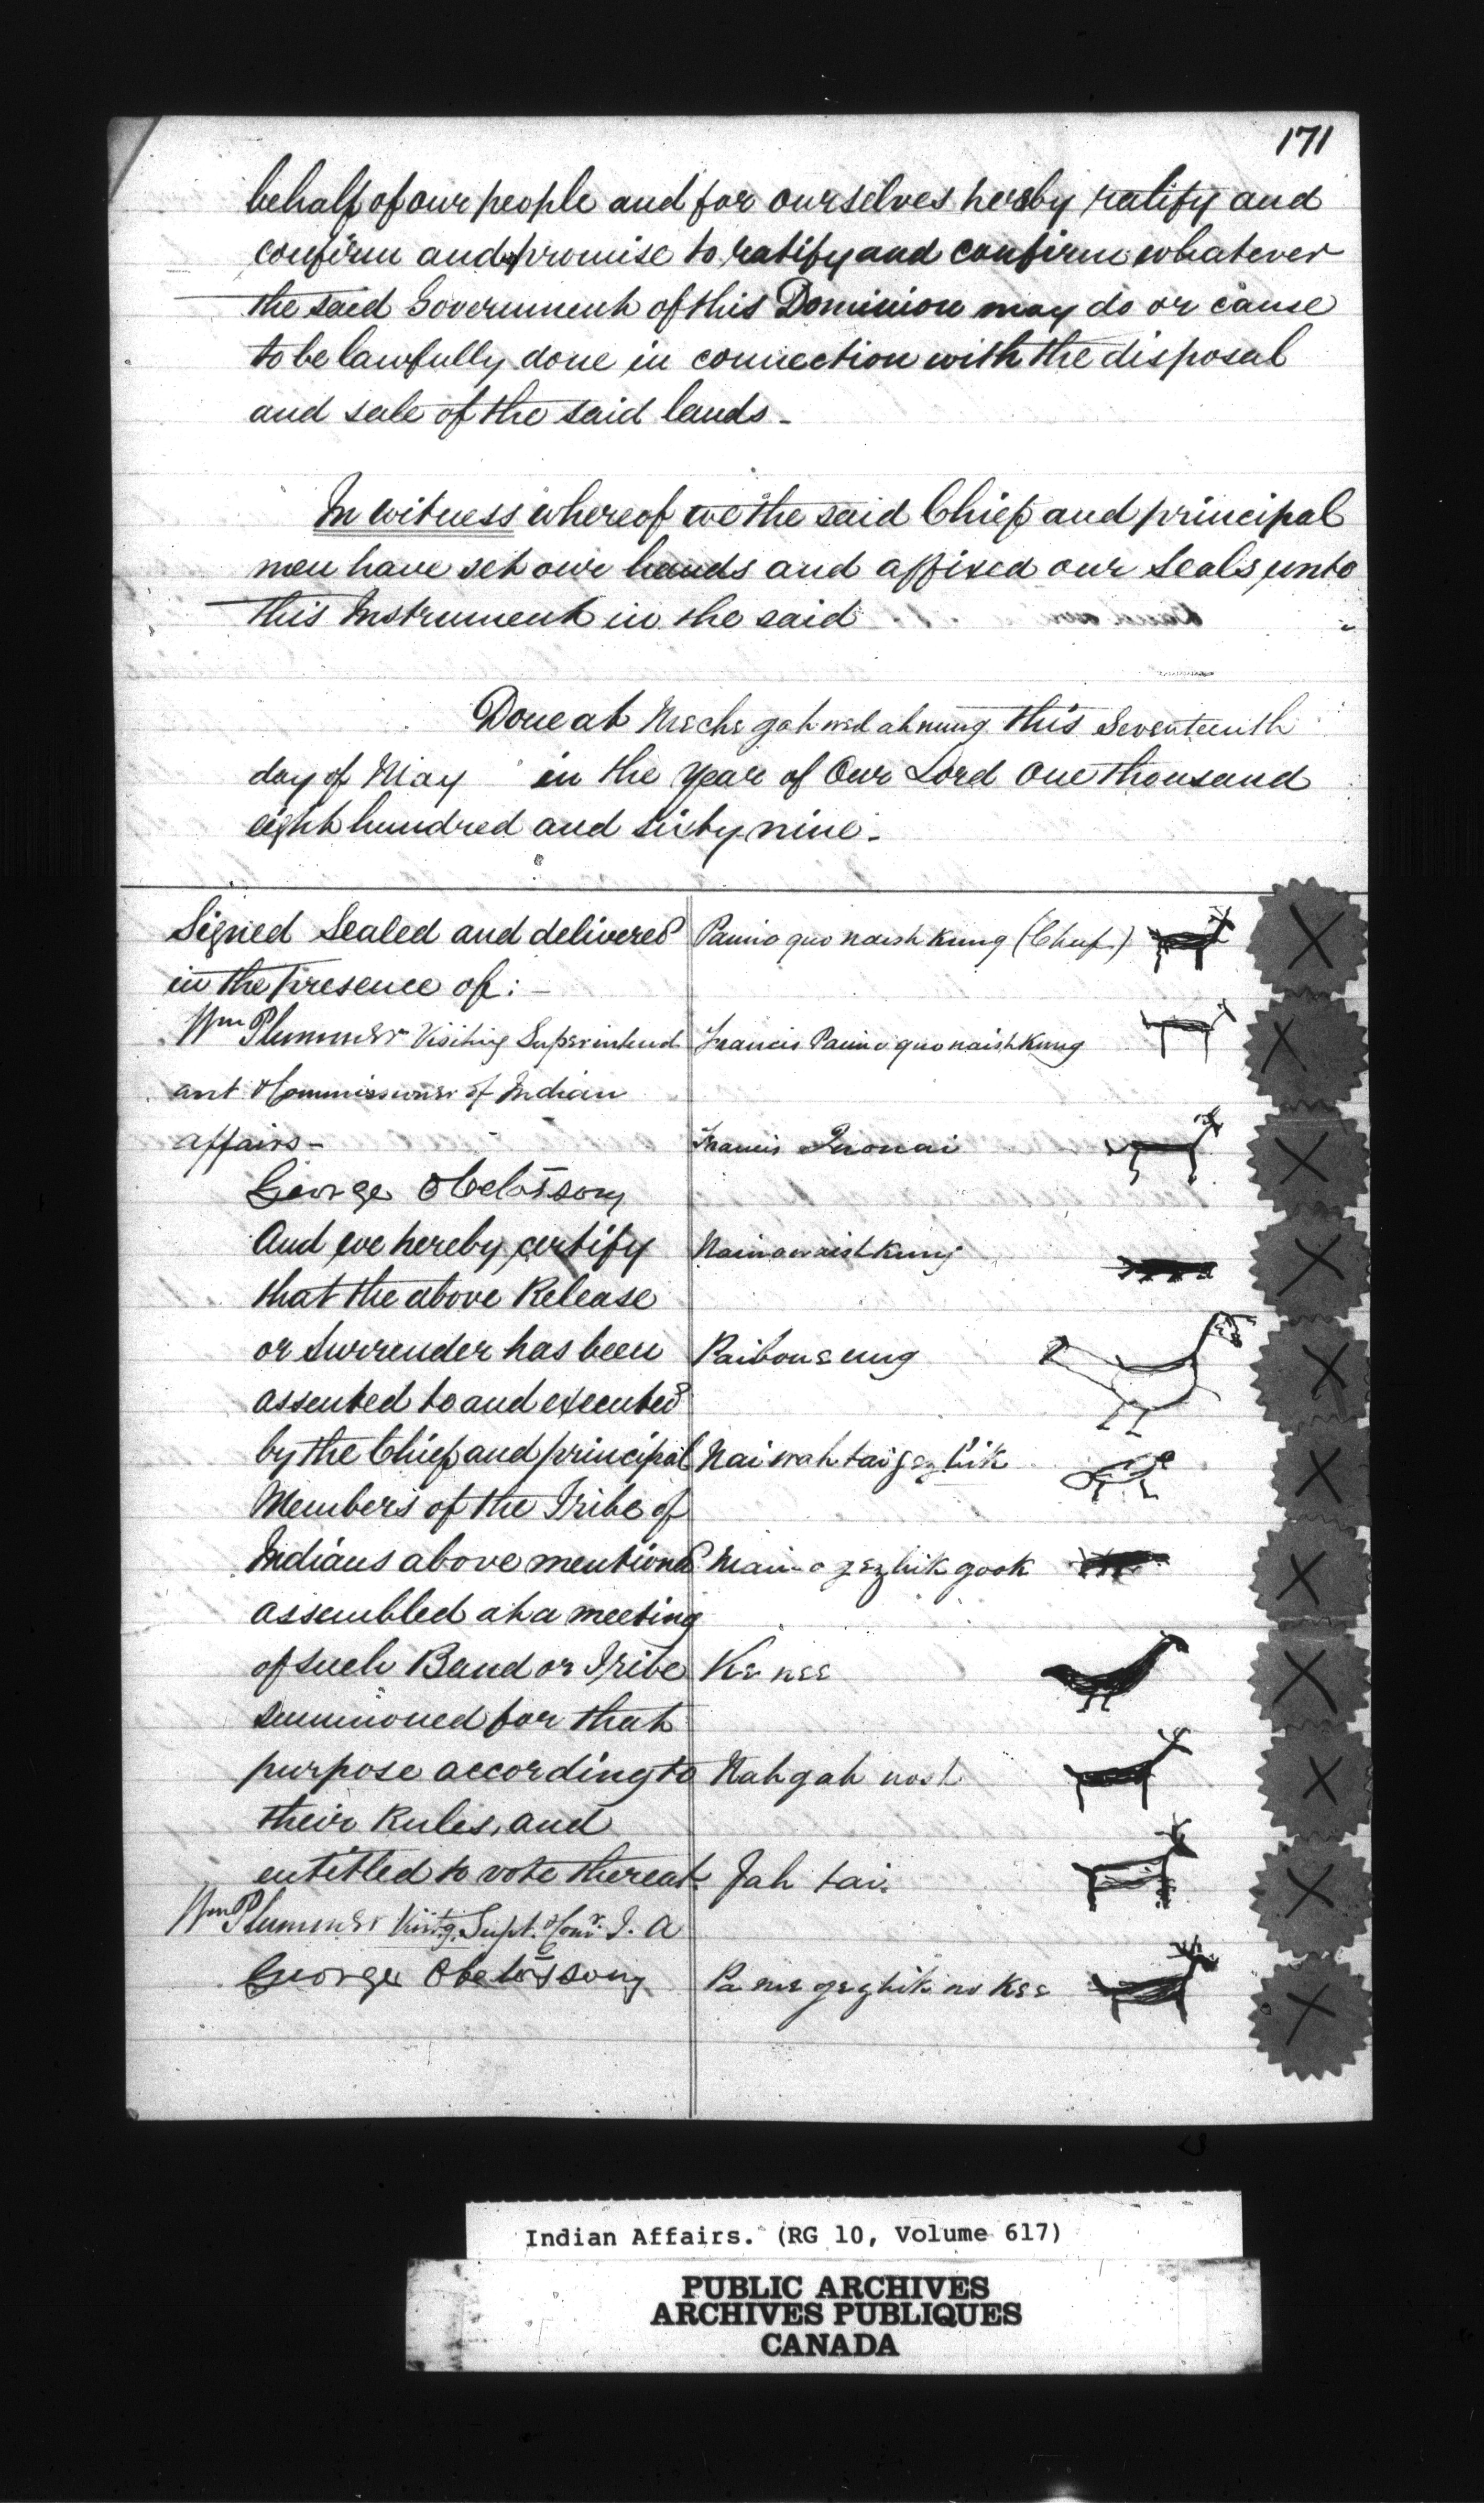 171
behalf of our people and for ourselves hereby ratify and
confirm and promise to ratify and confirm whatever
the said Government of this Dominion may do or cause
to be lawfully done in connection with the disposal
and sale of the said lands -
In witness whereof we the said Chief and principal
men have set our hands and affixed our seals unto
this Instrument in the said
Done at Meche gah wed ah nung this Seventeenth
day of May in the Year of Our Lord One thousand
eight hundred and sixty nine -
Signed Sealed and delivered
in the presence of : -
Wm Plummer Visiting Superintend
ant & Commissioner of Indian
affairs -
George Obetossony
And we hereby certify
that the above Release
or Surrender has been
assented to and executed
by the Chief and principal
Members of the Tribe of
Indians above mentioned
assembled at a meeting
of such Band or Tribe
summoned for that
purpose according to
their Rules, and
entitled to vote thereat.
Wm Plummer Visitg. Supt. & Comr. I. A
George
Paimo quo naish kung (Chief.)
Francis Paimo quo naish kung
Francis
Nainawaish kung
Paibouseung
Naiwahtaigezhik
Maimo gezhik gook
Ke nee
Nahgah nosh
Jah tai.
Pa me gezhik no kee
Indian Affairs. (RG 10, Volume 617)
PUBLIC ARCHIVES
ARCHIVES PUBLIQUES
CANADA